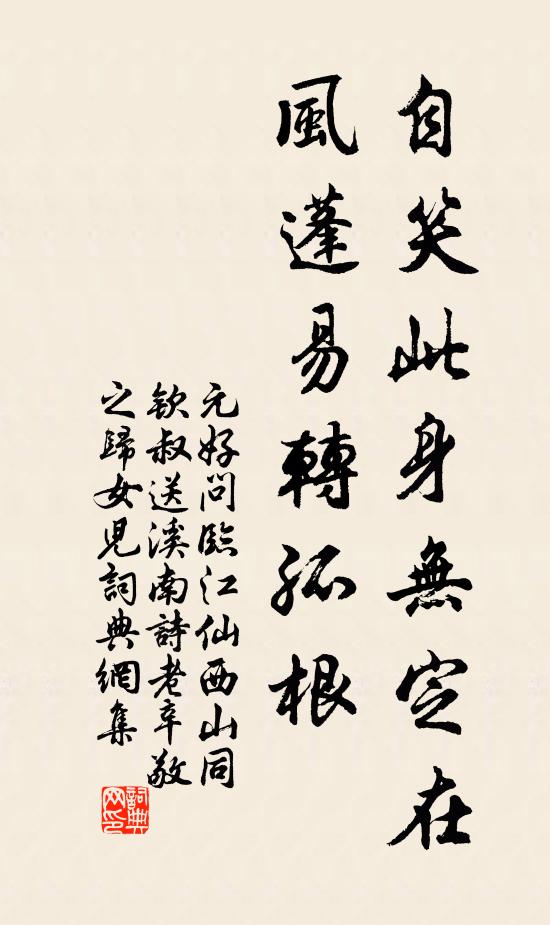 自笑此身無定在
風蓬易轉孤根
元好問臨江仙西山同
欽叔送溪南詩老辛敬
之歸女児詞典網集
詞典
网印